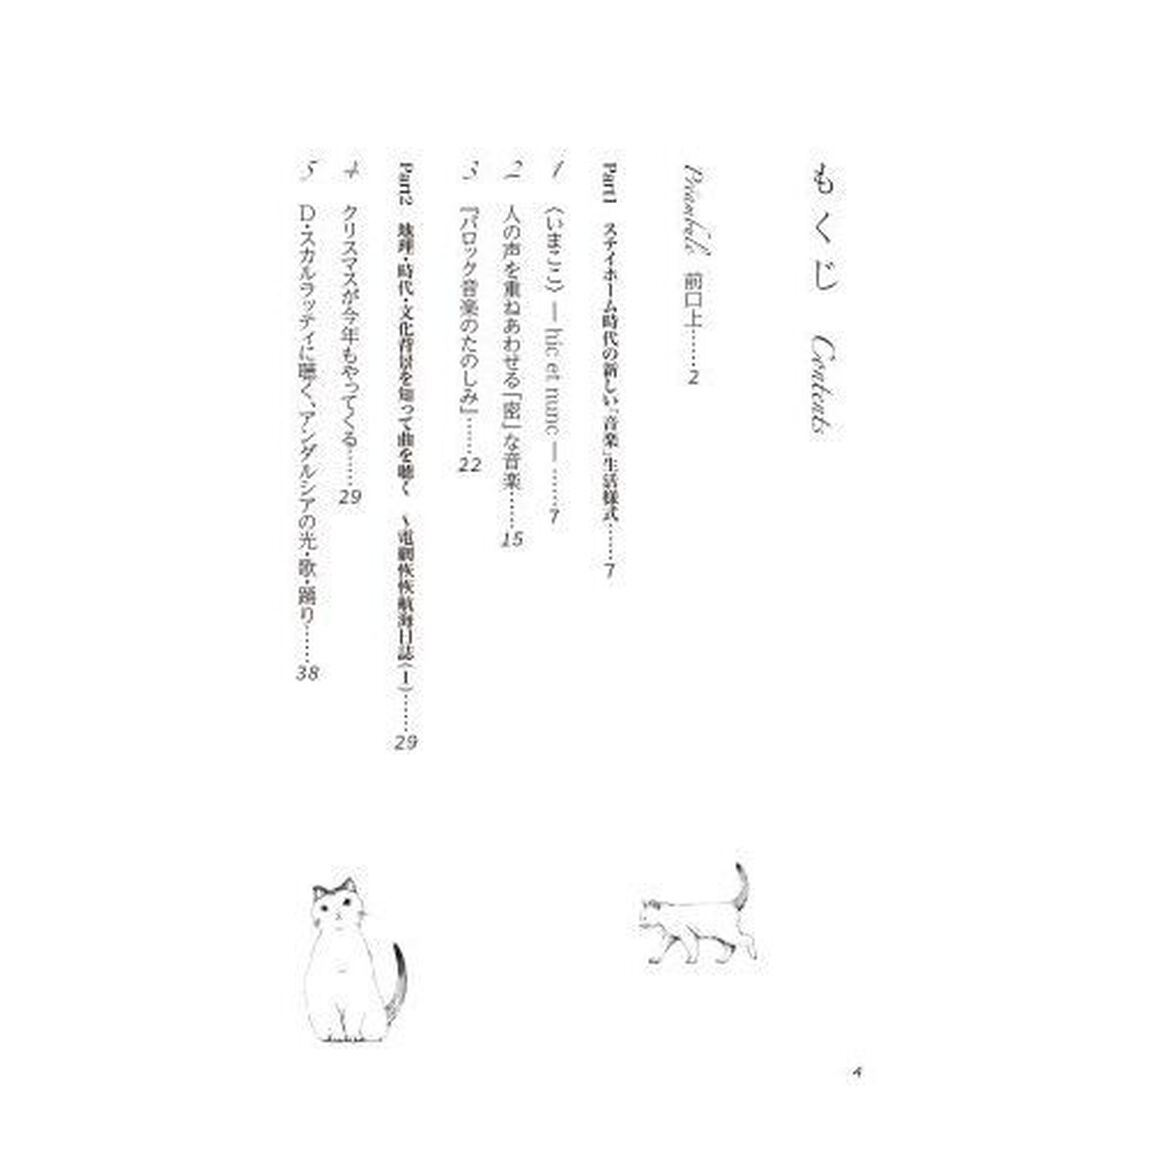 もくじ Contents
Préambule 前口上……2
Part1 ステイホーム時代の新しい「音楽」生活様式……7
1 〈いまここ〉― hic et nunc ― ……7
2 人の声を重ねあわせる「密」な音楽……15
3 『バロック音楽のたのしみ』……22
Part2 地理・時代・文化背景を知って曲を聴く ～電網恢恢航海日誌（1）……29
4 クリスマスが今年もやってくる……29
5 D・スカルラッティに聴く、アンダルシアの光・歌・踊り……38
4